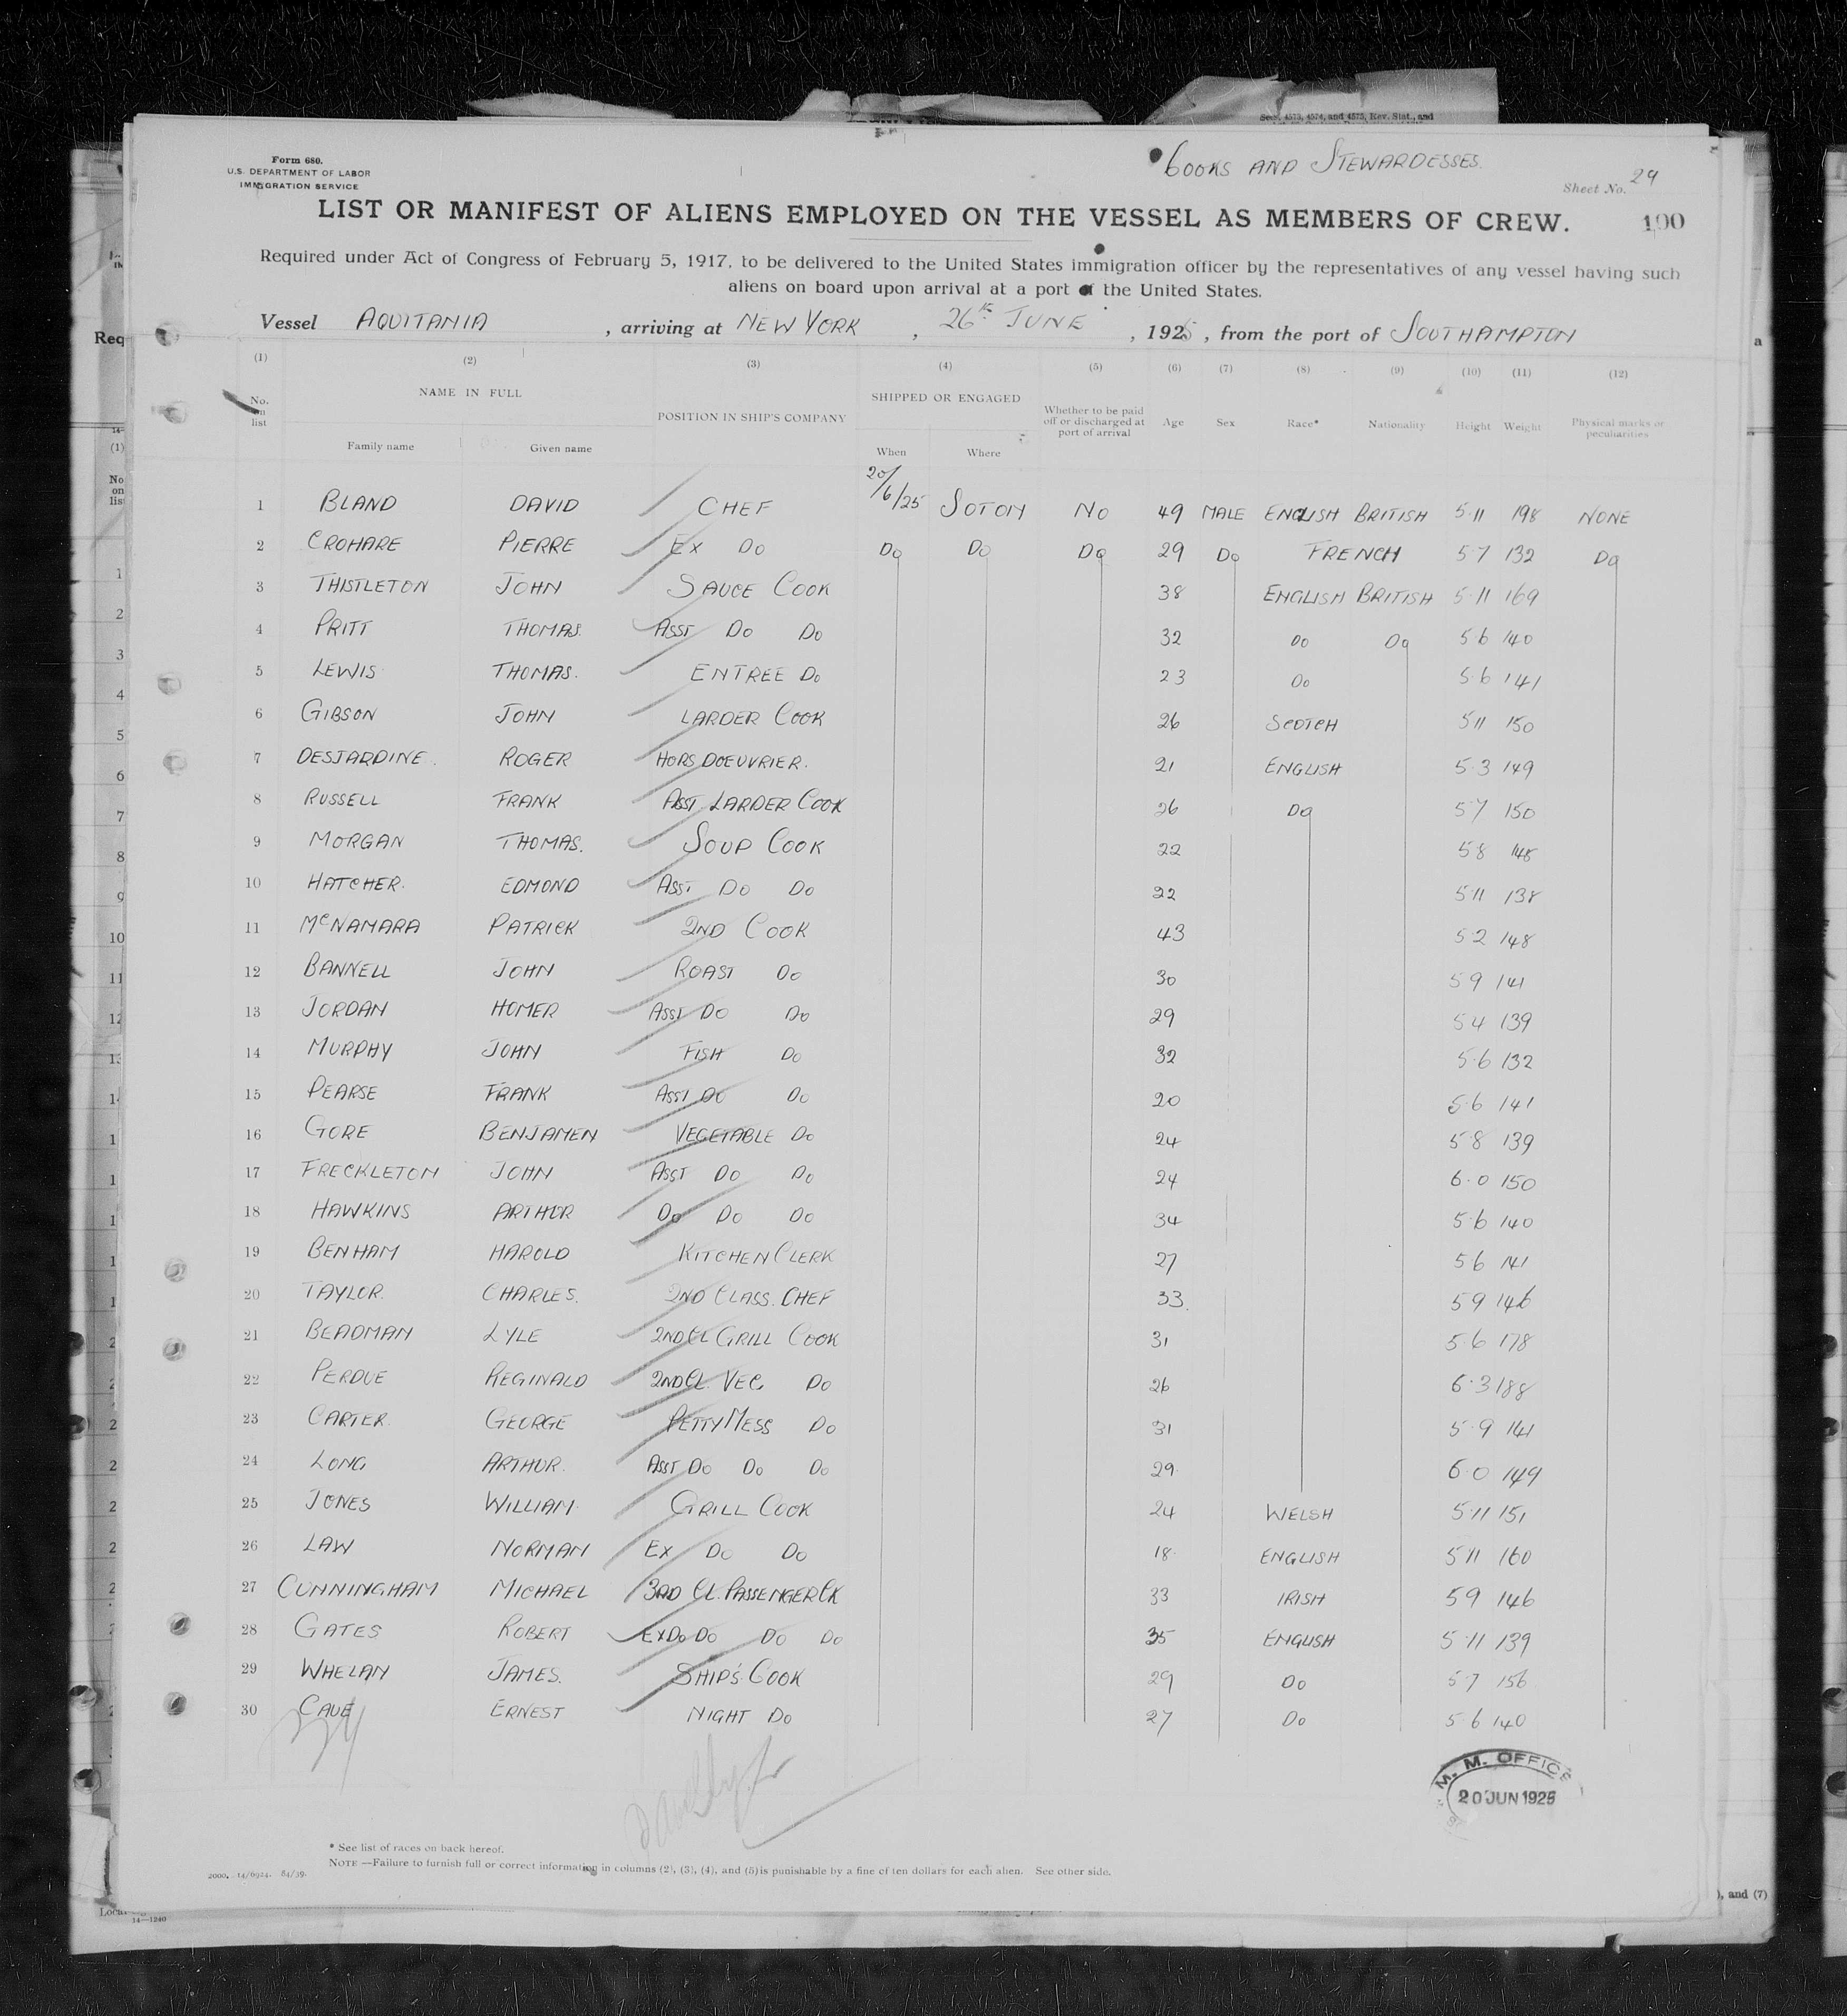 Secs. 4573, 4574, and 4575, Rev. Stat., and
Form 680.
U.S. DEPARTMENT OF LABOR
IMMIGRATION SERVICE
COOKS AND STEWARDESSES.
Sheet No. 29
LIST OR MANIFEST OF ALIENS EMPLOYED ON THE VESSEL AS MEMBERS OF CREW. 100
Required under Act of Congress of February 5, 1917, to be delivered to the United States immigration officer by the representatives of any vessel having such
aliens on board upon arrival at a port of the United States.
Vessel AQUITANIA, arriving at NEW YORK, 26th JUNE, 1925, from the port of SOUTHAMPTON
(1) (2) (3) (4) (5) (6) (7) (8) (9) (10) (11) (12)
No. on list NAME IN FULL Family name Given name POSITION IN SHIP'S COMPANY SHIPPED OR ENGAGED When Where Whether to be paid off or discharged at port of arrival Age Sex Race* Nationality Height Weight Physical marks or peculiarities
1 BLAND DAVID CHEF 20/6/25 SOTON NO 49 MALE ENGLISH BRITISH 5·11 198 NONE
2 CROHARE PIERRE EX DO DO DO DO 29 DO FRENCH 5 7 132 DO
3 THISTLETON JOHN SAUCE COOK 38 ENGLISH BRITISH 5·11 169
4 PRITT THOMAS. ASST DO DO 32 DO DO 5 6 140
5 LEWIS THOMAS. ENTREE DO 23 DO 5·6 141
6 GIBSON JOHN LARDER COOK 26 SCOTCH 5 11 150
7 DESJARDINE. ROGER HORS DOEUVRIER. 21 ENGLISH 5·3 149
8 RUSSELL FRANK ASST LARDER COOK 26 DO 5 7 150
9 MORGAN THOMAS. SOUP COOK 22 5 8 148
10 HATCHER. EDMOND ASST DO DO 22 5 11 138
11 McNAMARA PATRICK 2ND COOK 43 5 2 148
12 BANNELL JOHN ROAST DO 30 5 9 141
13 JORDAN HOMER ASST DO DO 29 5 4 139
14 MURPHY JOHN FISH DO 32 5·6 132
15 PEARSE FRANK ASST DO DO 20 5·6 141
16 GORE BENJAMEN VEGETABLE DO 24 5·8 139
17 FRECKLETON JOHN ASST DO DO 24 6·0 150
18 HAWKINS ARTHUR DO DO DO 34 5·6 140
19 BENHAM HAROLD KITCHEN CLERK 27 5 6 141
20 TAYLOR. CHARLES. 2ND CLASS. CHEF 33. 5 9 146
21 BEADMAN LYLE 2ND CL GRILL COOK 31 5·6 178
22 PERDUE REGINALD 2ND CL. VEG. DO 26 6·3 188
23 CARTER. GEORGE PETTY MESS DO 31 5·9 141
24 LONG ARTHUR. ASST DO DO DO 29 6·0 149
25 JONES WILLIAM GRILL COOK 24 WELSH 5·11 151
26 LAW NORMAN EX DO DO 18 ENGLISH 5 11 160
27 CUNNINGHAM MICHAEL 3RD CL. PASSENGER CK 33 IRISH 5 9 146
28 GATES ROBERT EX DO DO DO DO 35 ENGLISH 5·11 139
29 WHELAN JAMES. SHIP'S COOK 29 DO 5 7 156
30 CAVE ERNEST NIGHT DO 27 DO 5 6 140
M. M. OFFICE
20 JUN 1925
* See list of races on back hereof.
NOTE —Failure to furnish full or correct information in columns (2), (3), (4), and (5) is punishable by a fine of ten dollars for each alien. See other side.
2000. 14/6924. 84/39.
), and (7)
14—1240